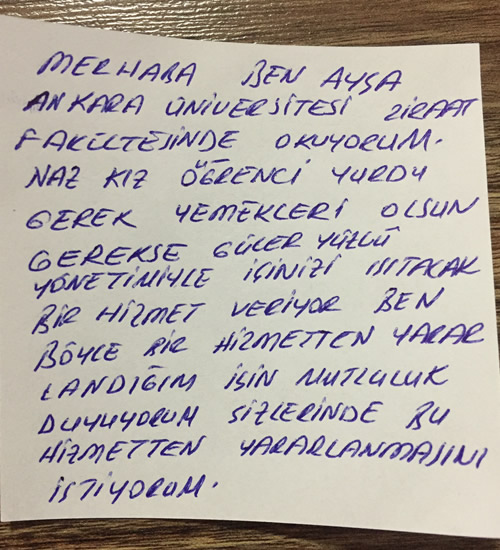 MERHABA BEN AYŞA
ANKARA ÜNİVERSİTESİ ZİRAAT
FAKÜLTESİNDE OKUYORUM.
NAZ KIZ ÖĞRENCİ YURDU
GEREK YEMEKLERİ OLSUN
GEREKSE GÜLER YÜZLÜ
YÖNETİMİYLE İÇİNİZİ ISITACAK
BİR HİZMET VERİYOR BEN
BÖYLE BİR HİZMETTEN YARAR
LANDIĞIM İÇİN MUTLULUK
DUYUYORUM SİZLERİNDE BU
HİZMETTEN YARARLANMASINI
İSTİYORUM.